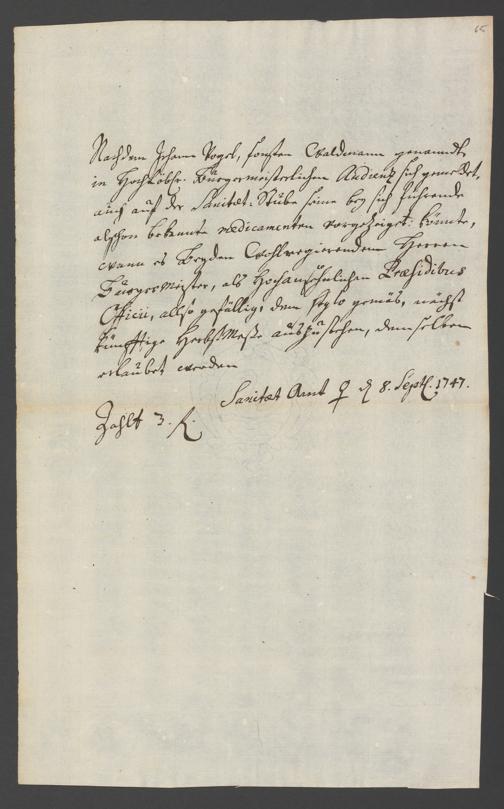 65
Nachdem Johann Vogel, sonsten Waldmann genanndt,
in Hochlöbl. Bürgermeisterlichen Audientz sich gemeldet,
auch auf der Sanitæt-Stube seine bey sich führende
alschon bekannte medicamenten vorgezeiget: könnte,
wann es Beyden Wohlregierenden Herren
Bürgermeister, als Hochansehnlichen Præsidibus
Officii, allso gefällig, dem stylo gemäs, nächst
künfftige HerbstMeße auszustehen, demselben
erlaubet werden
Sanitæt Amt ♀ d 8. Septl. 1747.
Zahlt 3. f.